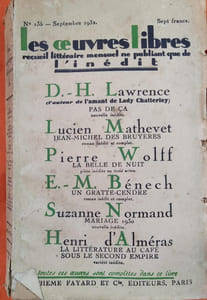 Nº 135 - Septembre 1932. Sept francs.
les œuvres libres
recueil littéraire mensuel ne publiant que de
l'inédit
D.-H. Lawrence
(l'auteur de l'amant de Lady Chatterley)
PAS DE ÇA
nouvelle inédite.
Lucien Mathevet
JEAN-MICHEL DES BRUYERES
roman inédit et complet.
Pierre Wolff
LA BELLE DE NUIT
pièce inédite en trois actes.
E.-M. Bénech
UN GRATTE-CENDRE
roman inédit et complet.
Suzanne Normand
MARIAGE 1930
nouvelle inédite.
Henri d'Alméras
LA LITTÉRATURE AU CAFÉ
SOUS LE SECOND EMPIRE
variété inédite.
toutes ces œuvres sont complètes dans ce livre
THEME FAYARD ET Cie, EDITEURS, PARIS